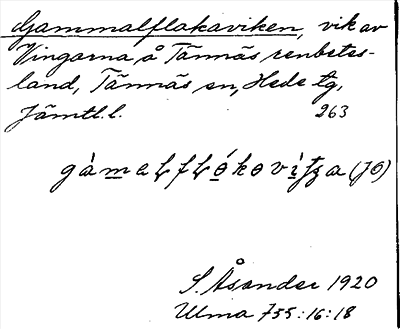 Gammalflakaviken, vik av
Vingarna å Tännäs renbetes-
land, Tännäs sn, Hede tg,
Jämtl. l. 263
(JO)
S. Åsander 1920
Ulma 755:16:18